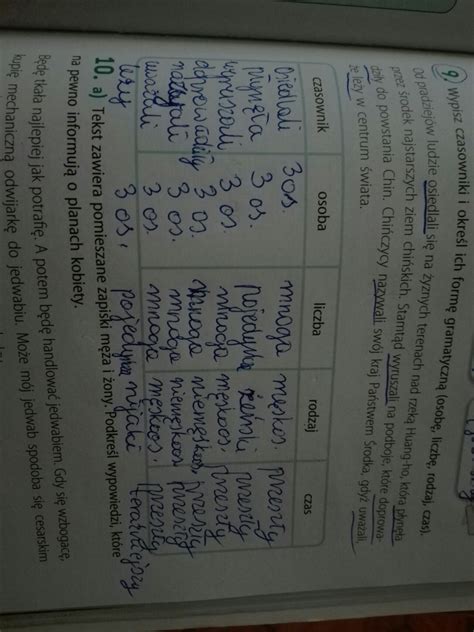 9. Wypisz czasowniki i określ ich formę gramatyczną (osobę, liczbę, rodzaj, czas).
Od pradziejów ludzie osiedlali się na żyznych terenach nad rzeką Huang-ho, która płynęła
przez środek najstarszych ziem chińskich. Stamtąd wyruszali na podboje, które doprowa-
dziły do powstania Chin. Chińczycy nazywali swój kraj Państwem Środka, gdyż uważali,
że leży w centrum świata.
czasownik osoba liczba rodzaj czas
osiedlali 3 os. mnoga męskos. przeszły
płynęła 3 os. pojedyncza żeński przeszły
wyruszali 3 os. mnoga męskoos. przeszły
doprowadziły 3 os. mnoga niemęskoos. przeszły
nazywali 3 os. mnoga niemęskoos przeszły
uważali 3 os. mnoga męskoos. przeszły
leży 3 os. pojedyncza nijaki teraźniejszy
10. a) Tekst zawiera pomieszane zapiski męża i żony. Podkreśl wypowiedzi, które
na pewno informują o planach kobiety.
Będę tkała najlepiej jak potrafię. A potem będę handlować jedwabiem. Gdy się wzbogacę,
kupię mechaniczną odwijarkę do jedwabiu. Może mój jedwab spodoba się cesarskim